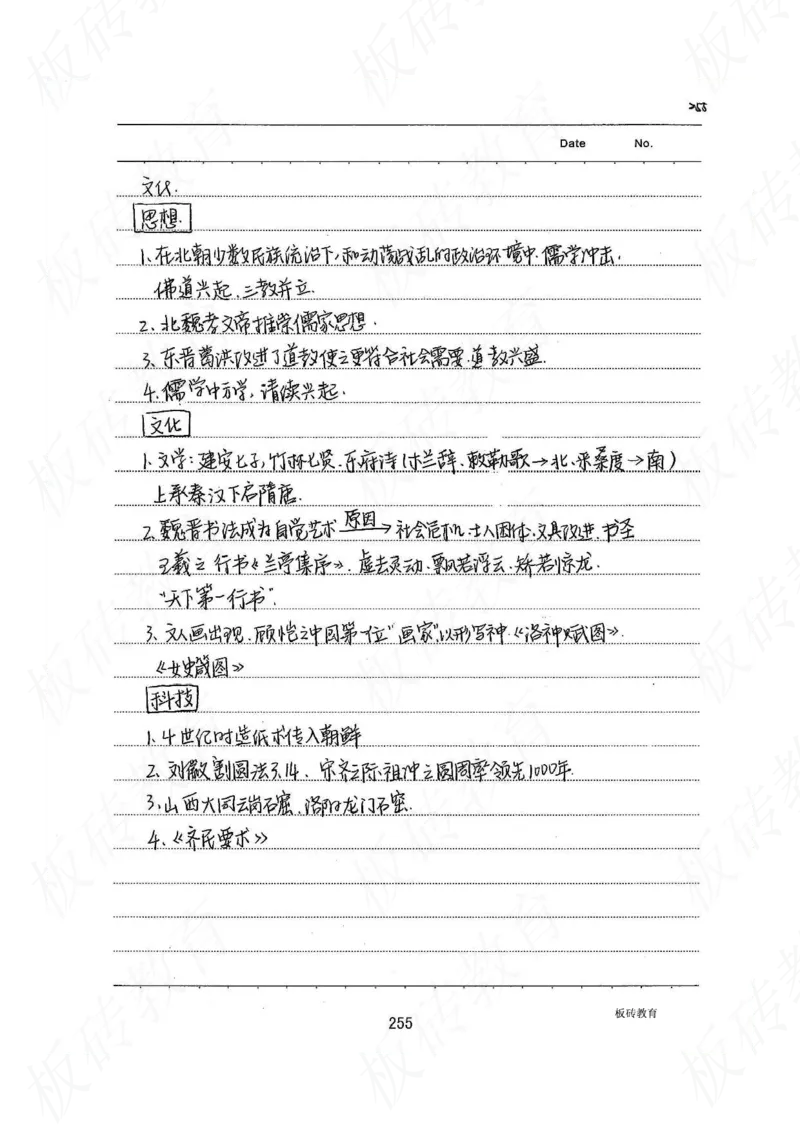 255
Date No.
文化.
思想.
1、在北朝少数民族统治下,和动荡战乱的政治环境中.儒学冲击.
佛道兴起.三教并立.
2、北魏孝文帝推崇儒家思想.
3、东晋葛洪改进了道教使之更符合社会需要.道教兴盛.
4、儒学中方学,清谈兴起.
文化
1、文学:建安七子,竹林七贤.乐府诗(木兰辞.敕勒歌→北、采桑度→南)
上承秦汉下启隋唐.
2、魏晋书法成为自觉艺术 原因→社会危机.士人困体.文具改进.书圣
王羲之 行书《兰亭集序》.虚去灵动.飘若浮云.矫若惊龙.
“天下第一行书”.
3、文人画出现.顾恺之中国第一位“画家”以形写神.《洛神赋图》.
《女史箴图》
科技
1、4世纪时造纸术传入朝鲜
2、刘徽割圆法3.14. 宋齐之际.祖冲之圆周率领先1000年.
3、山西大同云岗石窟.洛阳龙门石窟.
4、《齐民要术》
255
板砖教育
板砖教育